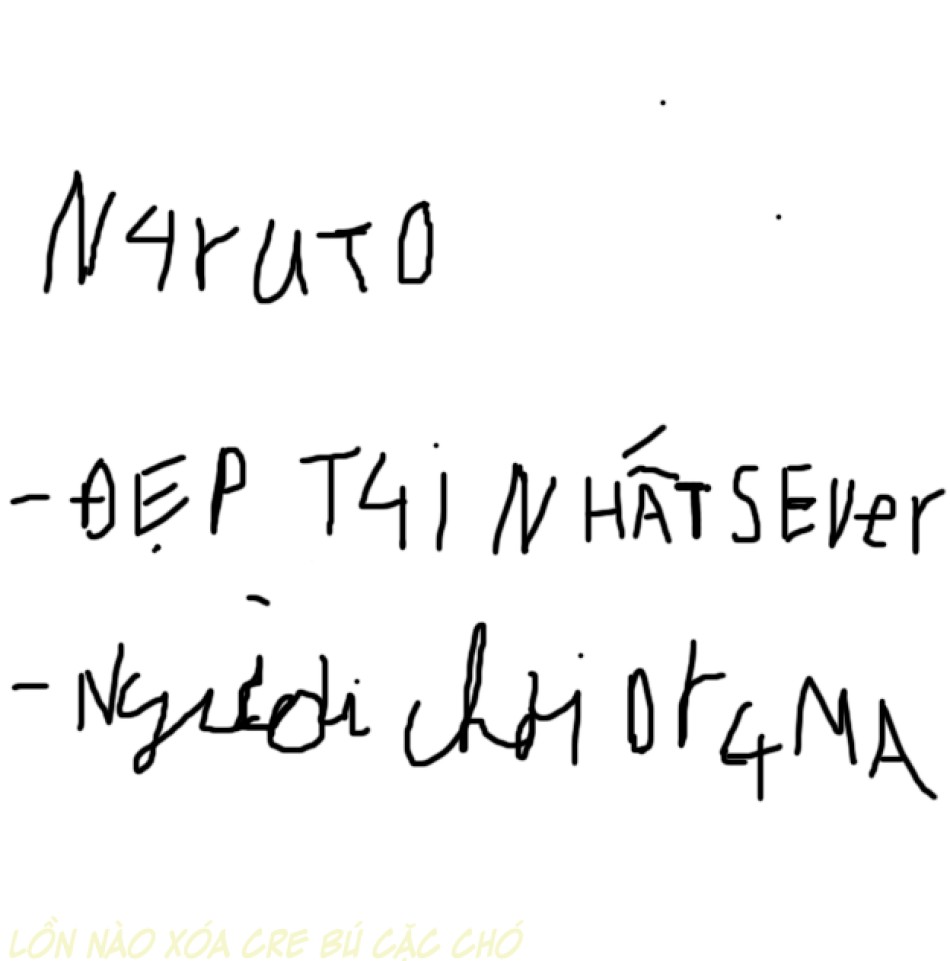 N4ruTO
- ĐẸP T4i NHẤT SEVer
- Người chơi Dr4MA
LỒN NÀO XÓA CRE BÚ CẶC CHÓ